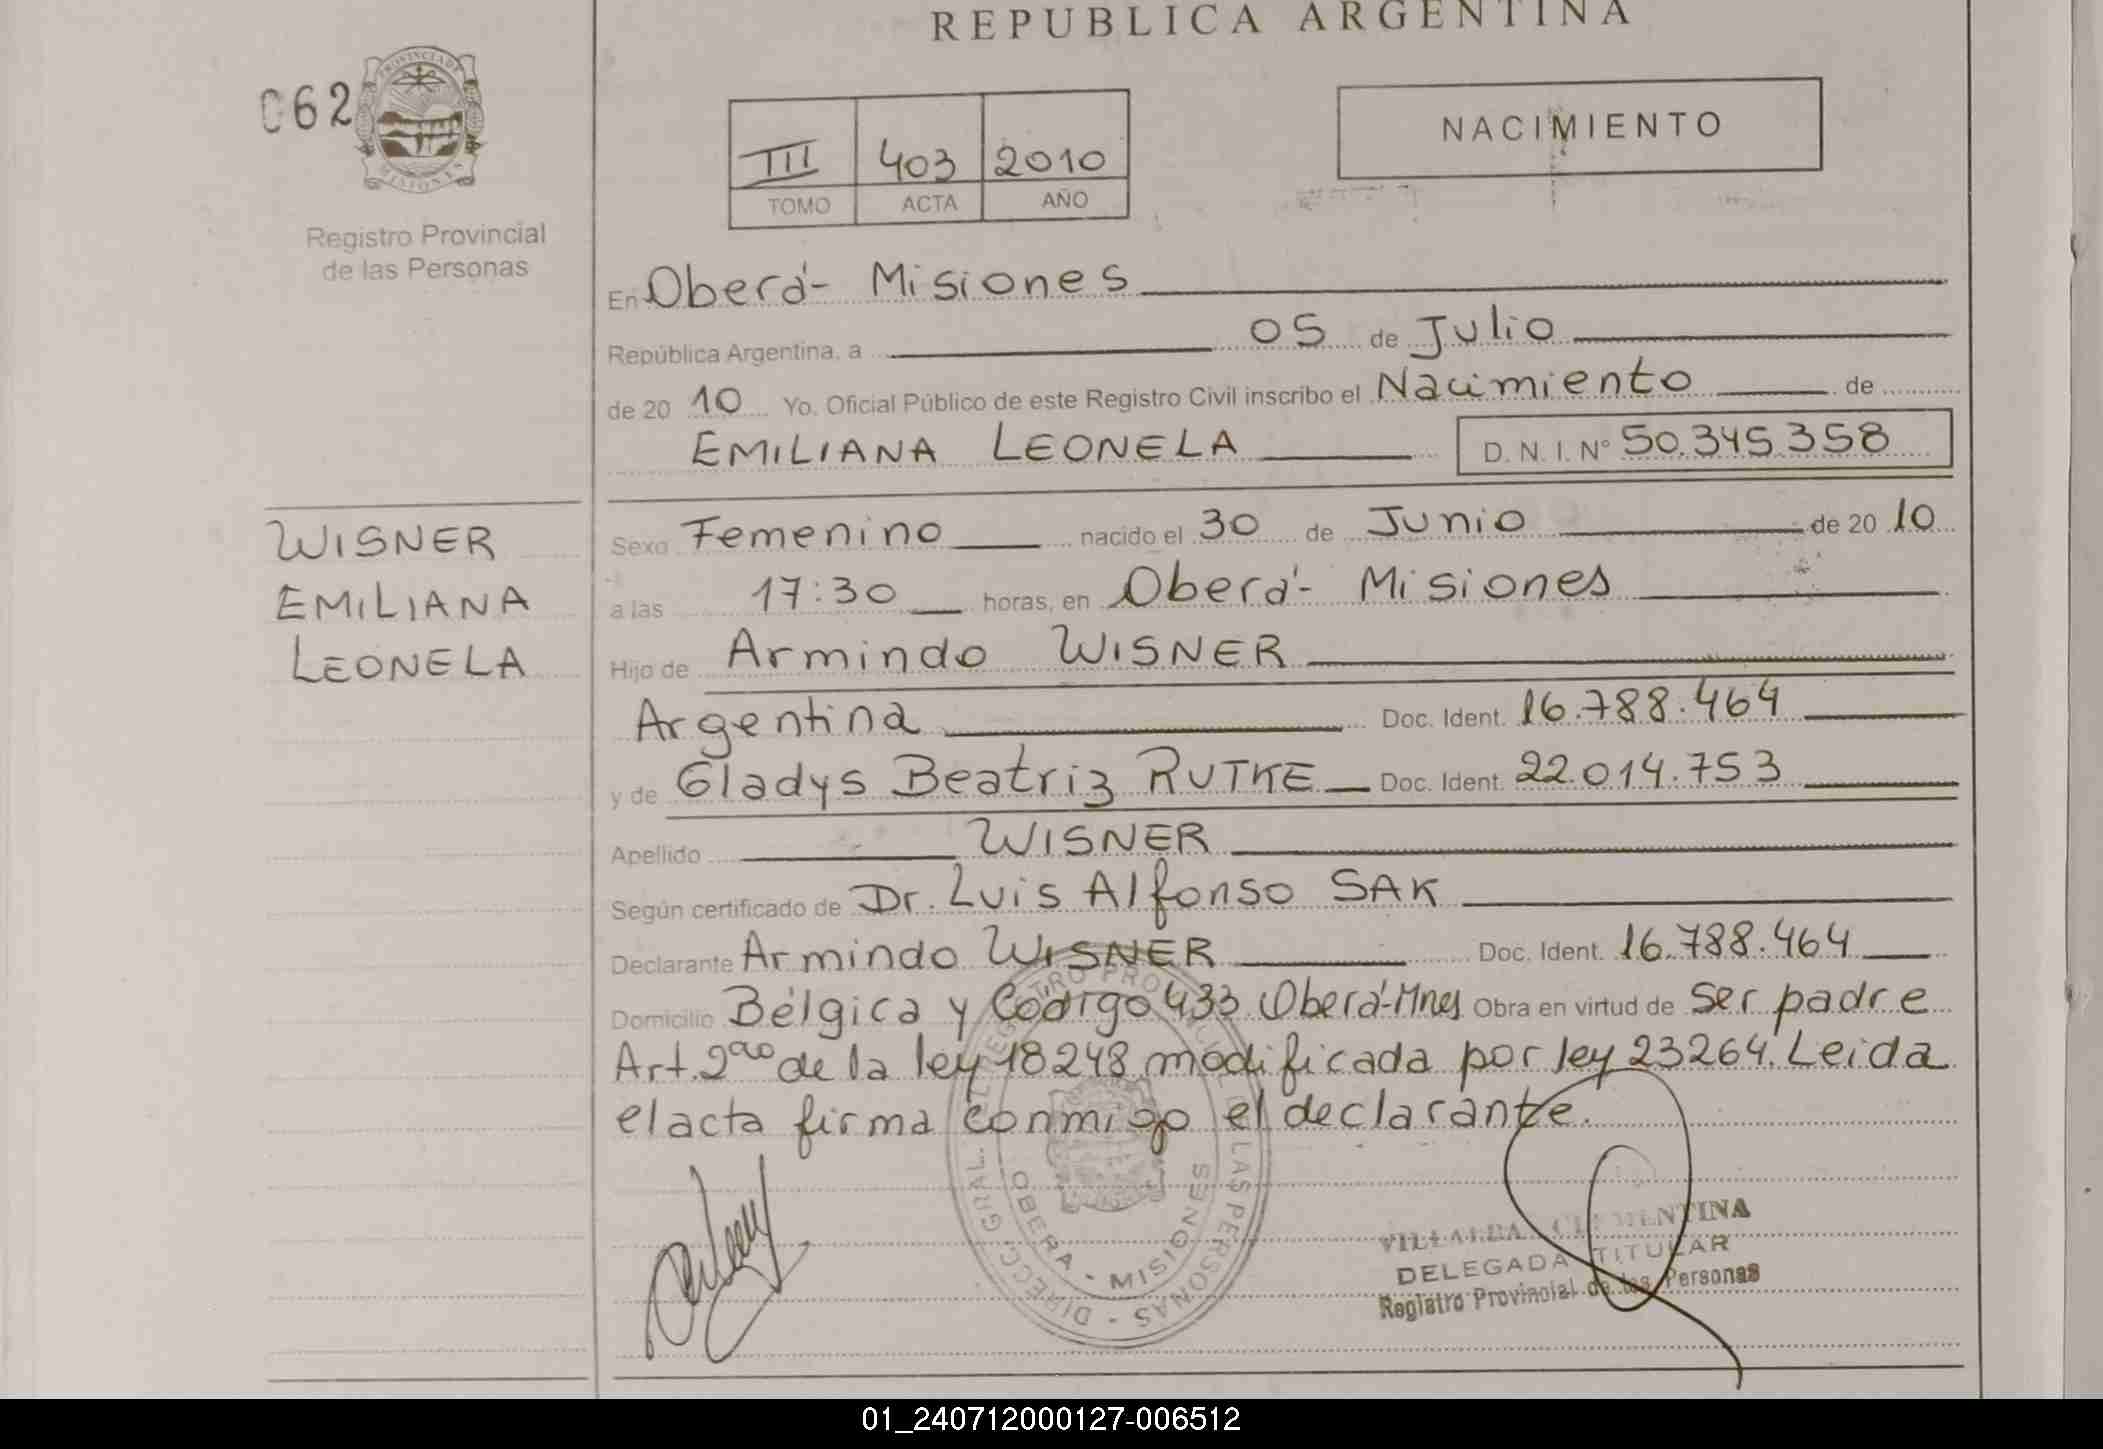 REPUBLICA ARGENTINA
062
PROVINCIA DE MISIONES
Registro Provincial
de las Personas
III 403 2010
TOMO ACTA AÑO
NACIMIENTO
En Oberá - Misiones
República Argentina, a 05 de Julio
de 20 10 Yo. Oficial Público de este Registro Civil inscribo el Nacimiento de
EMILIANA LEONELA D. N. I. Nº 50.345.358
WISNER
EMILIANA
LEONELA
Sexo Femenino nacido el 30 de Junio de 20 10
a las 17:30 horas, en Oberá - Misiones
Hijo de Armindo WISNER
Argentina Doc. Ident. 16.788.464
y de Gladys Beatriz RUTKE Doc. Ident. 22.014.753
Apellido WISNER
Según certificado de Dr. Luis Alfonso SAK
Declarante Armindo WISNER Doc. Ident. 16.788.464
Domicilio Bélgica y Codigo 433 Oberá-Mnes Obra en virtud de ser padre
Art. 2do de la ley 18248 modificada por ley 23264. Leida
el acta firma conmigo el declarante.
DIRECC. GRAL. DEL REGISTRO PROVINCIAL DE LAS PERSONAS
OBERA - MISIONES
VILLALBA CLEMENTINA
DELEGADA TITULAR
Registro Provincial de las Personas
01_240712000127-006512